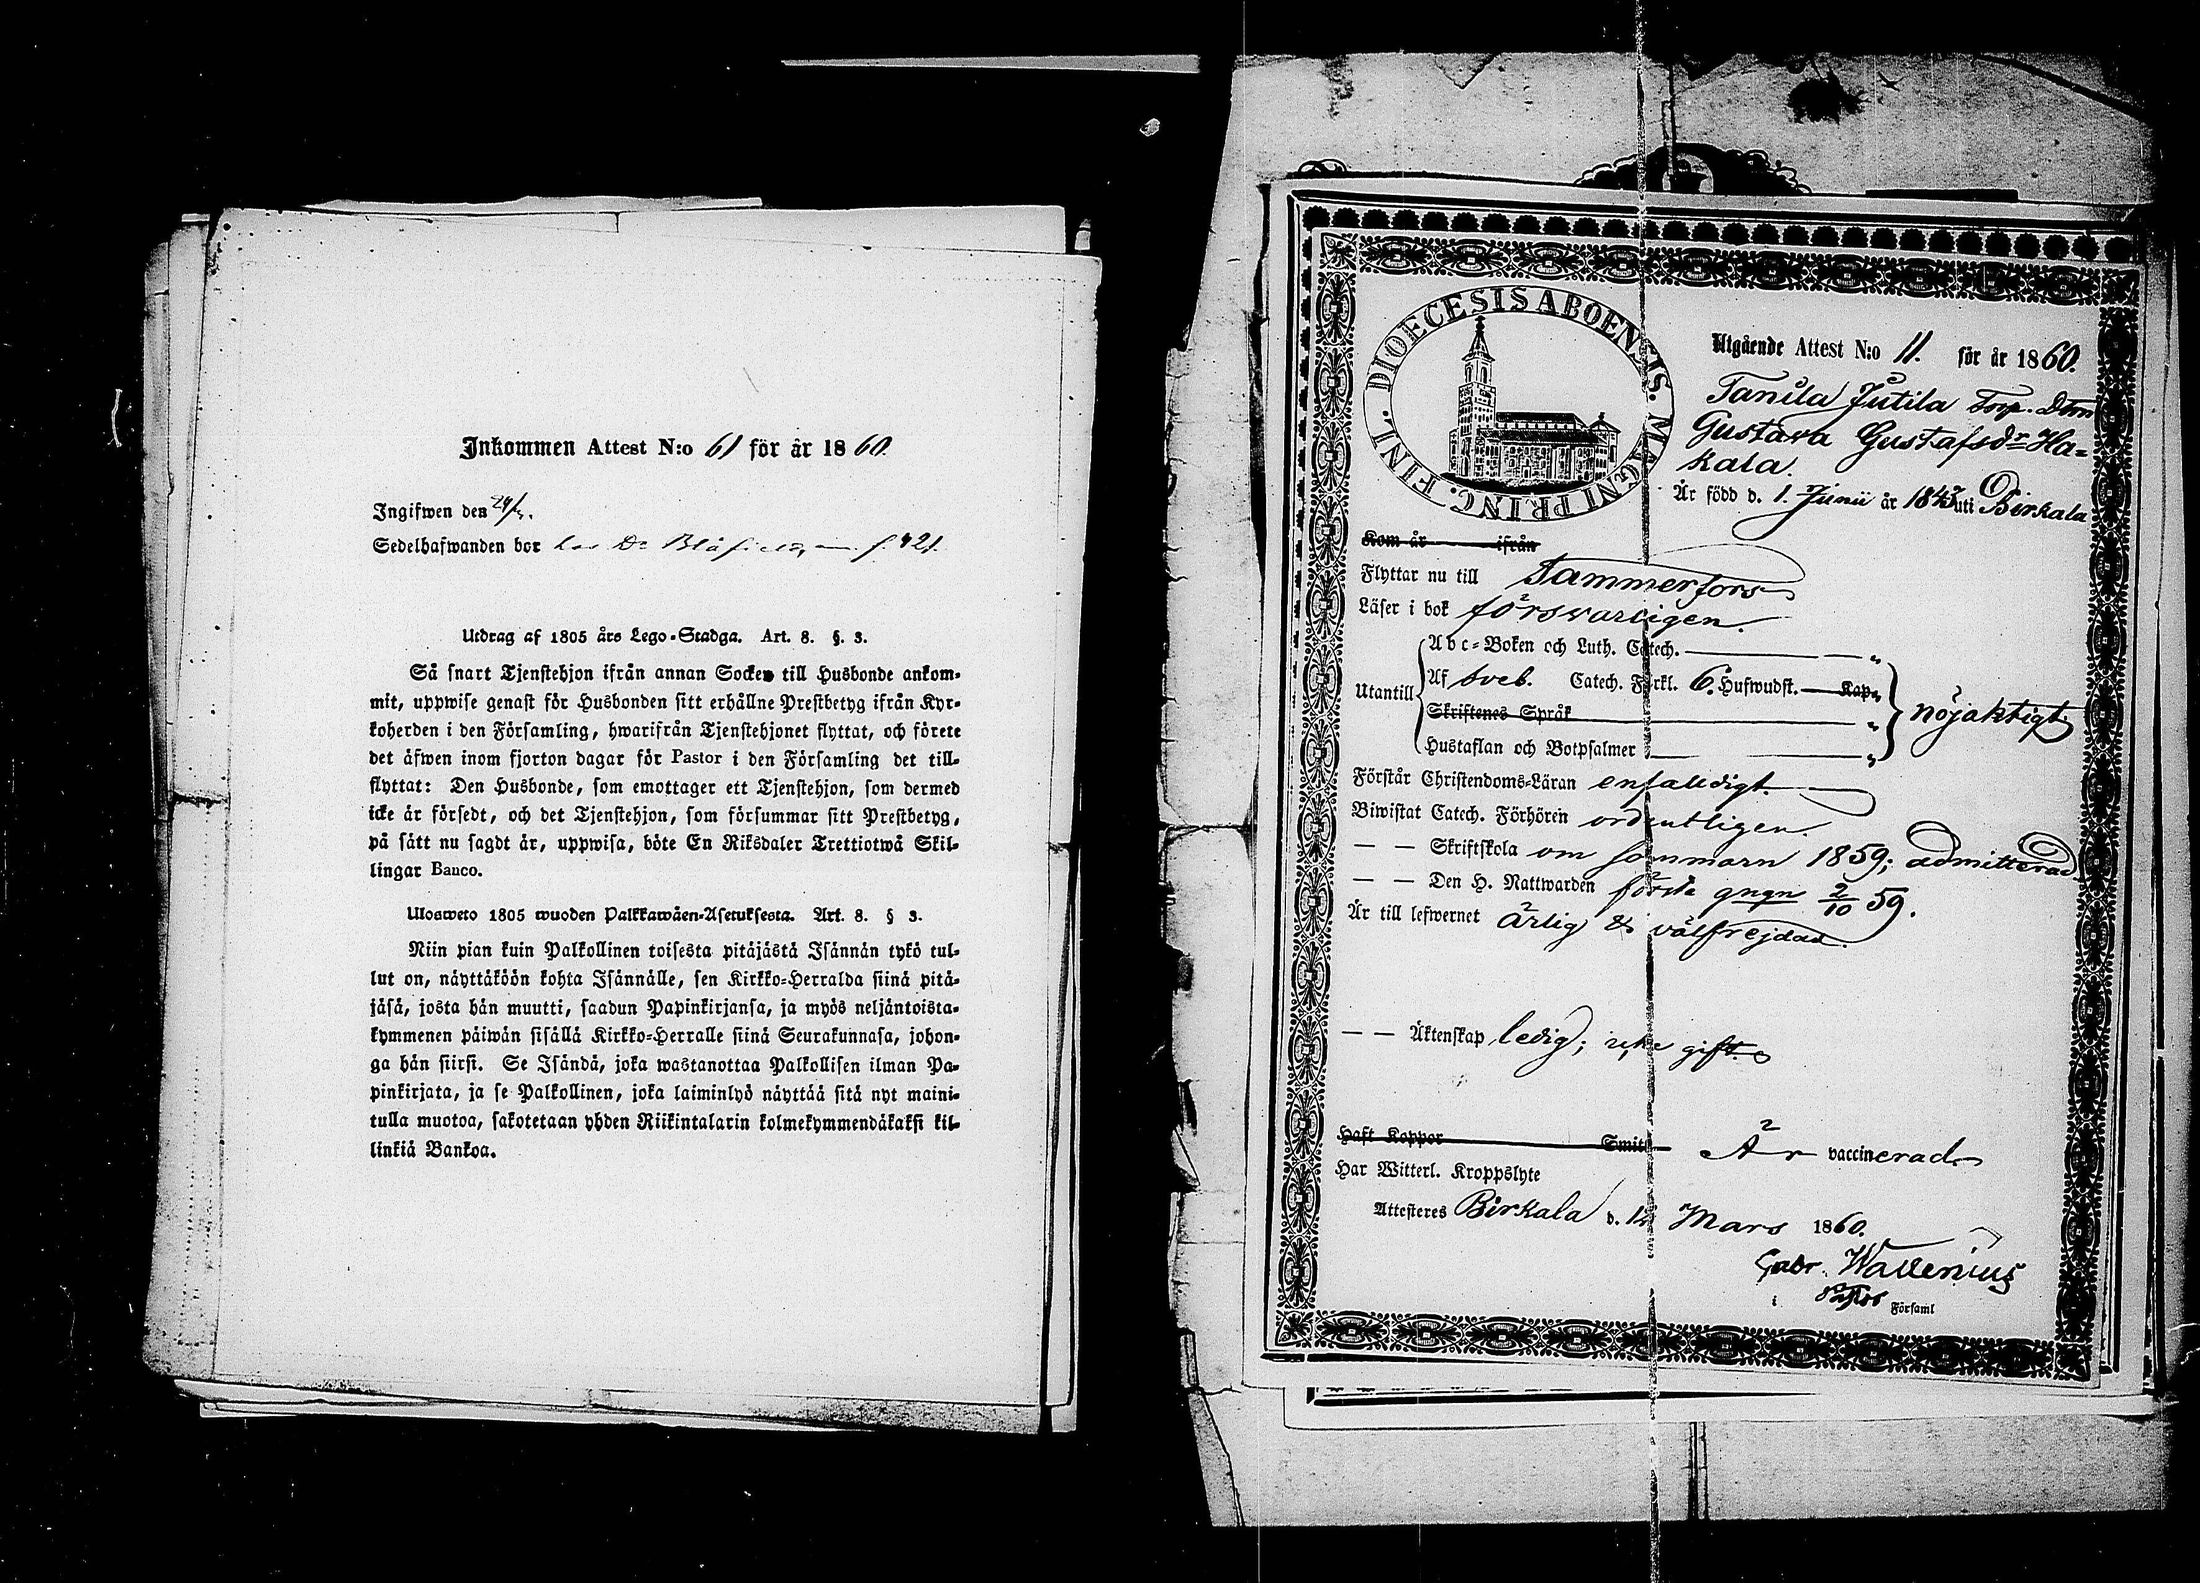 Inkommen Attest N:o 61 för år 1860.
Ingifwen den 24/3.
Sedelhafwanden bor hos Dr Blåfield, f. 421.
Utdrag af 1805 års Lego-Stadga. Art. 8. §. 3.
Så snart Tjenstehjon ifrån annan Socken till Husbonde ankom-
mit, uppwise genast för Husbonden sitt erhållne Prestbetyg ifrån Kyr-
koherden i den Församling, hwarifrån Tjenstehjonet flyttat, och förete
det äfwen inom fjorton dagar för Pastor i den Församling det till-
flyttat: Den Husbonde, som emottager ett Tjenstehjon, som dermed
icke är försedt, och det Tjenstehjon, som försummar sitt Prestbetyg,
på sätt nu sagdt är, uppwisa, böte En Riksdaler Trettiotwå Skil-
lingar Banco.
Ulosweto 1805 wuoden Palkkawäen-Asetuksesta. Art. 8. § 3.
Niin pian kuin Palkollinen toisesta pitäjästä Isännän tykö tul-
lut on, näyttäköön kohta Isännälle, sen Kirkko-Herralda siinä pitä-
jäsä, josta hän muutti, saadun Papinkirjansa, ja myös neljäntoista-
kymmenen päiwän sisällä Kirkko-Herralle siinä Seurakunnasa, johon-
ga hän siirsi. Se Isändä, joka wastanottaa Palkollisen ilman Pa-
pinkirjata, ja se Palkollinen, joka laiminlyö näyttää sitä nyt maini-
tulla muotoa, sakotetaan yhden Riikintalarin kolmekymmendäkaksi kil-
linkiä Bankoa.
DIOECESIS ABOENSIS. MAGNI PRINC. FINL.
Utgående Attest N:o 11. för år 1860.
Tanila Jutila Torp. Dtrn
Gustava Gustafsdr Ha-
kala.
Är född d. 1. Junii år 1843 uti Birkala
Kom år ifrån
Flyttar nu till Tammerfors
Läser i bok försvarligen.
Abc-Boken och Luth. Catech. "
Utantill Af Sveb. Catech. Förkl. 6. Hufwudst. Kap. nöjaktigt
Skriftenes Språk "
Hustaflan och Botpsalmer "
Förstår Christendoms-Läran enfaldigt.
Biwistat Catech. Förhören ordentligen.
— — Skriftskola om sommarn 1859; admitterad
— — Den H. Nattwarden första gngn 2/10 59.
Är till lefwernet ärlig & välfrejdad.
— — Äktenskap ledig; icke gift
Haft Koppor Smitt Är vaccinerad.
Har Witterl. Kroppslyte
Attesteres Birkala d. Mars 1860.
Gabr. Wallenius
i Pastor Församl